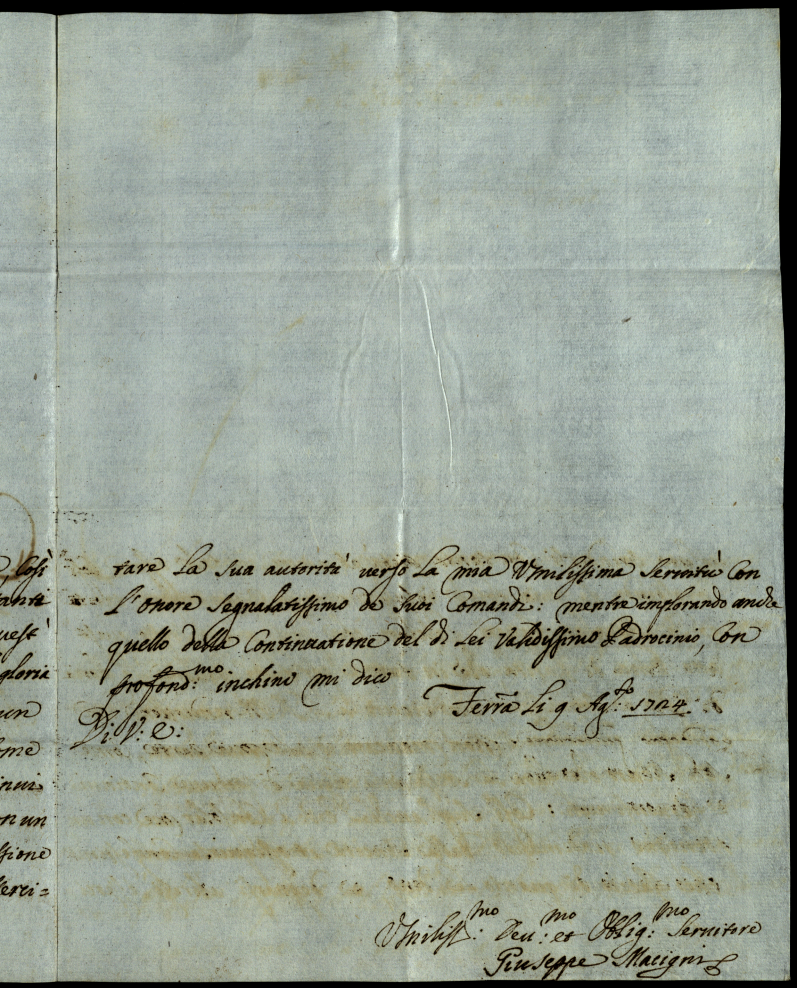 , Così
ante
uest'
gloria
un
ome
inui
on un
ssione
serci=
rare La sua autorità verso La mia Vmilissima Seruitù Con
l'onore segnalatissimo de Suoi Comandi: mentre implorando anche
quello della Continuatione del di Lei Validissimo Padrocinio, Con
profond:mo inchino mi dico
Ferra Li 9 Ag:to 1724
Di V: E:
Vmiliss:mo Deu:mo et Oblig:mo Seruitore
Giuseppe Macigni